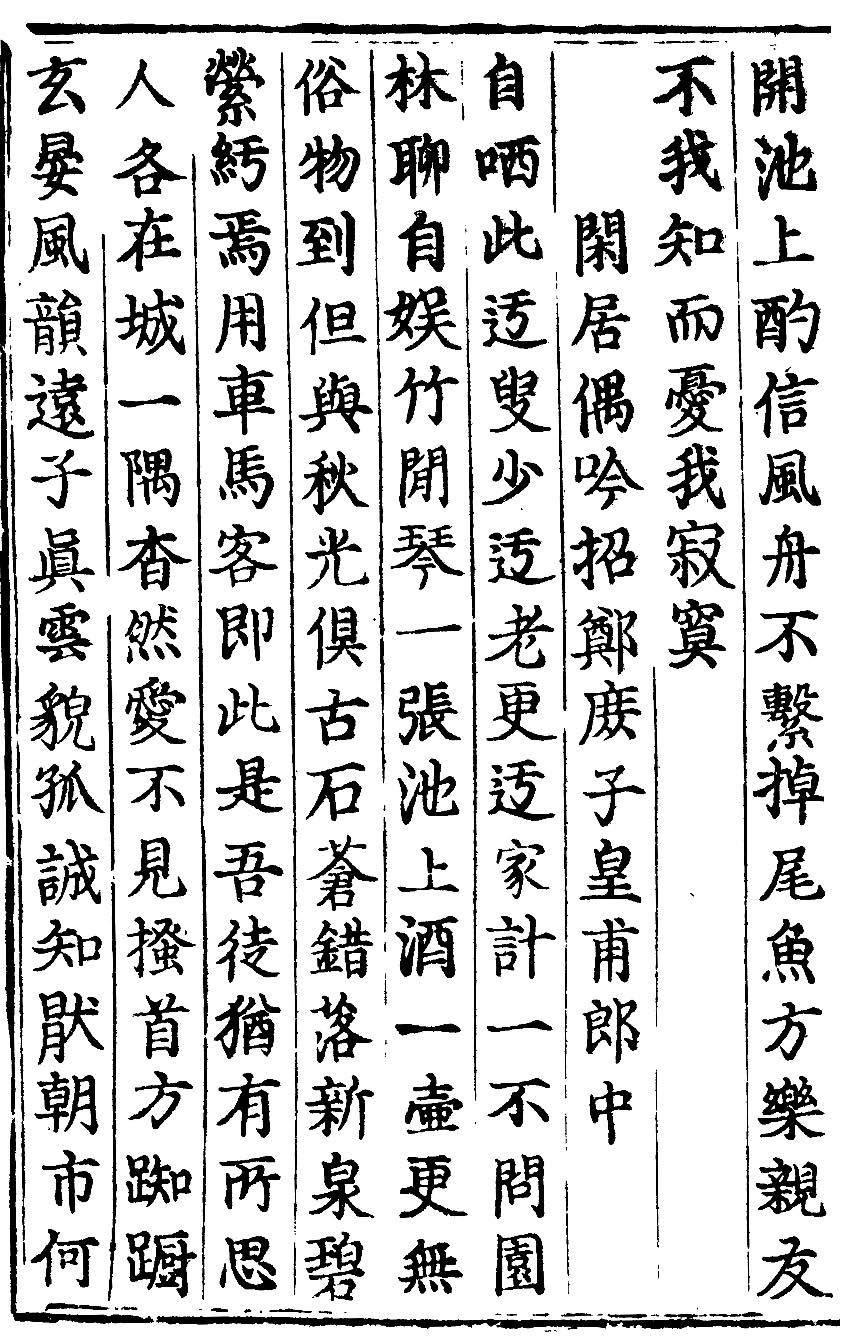 開池上酌信風舟不繫掉尾魚方樂親友
不我知而憂我寂寞
閑居偶吟招鄭庻子皇甫郎中
自哂此迃叟少迃老更迃家計一不問園
林聊自娱竹閒琴一張池上酒一壷更無
俗物到但與秋光俱古石蒼錯落新泉碧
縈紆焉用車馬客即此是吾徒猶有所思
人各在城一隅杳然愛不見搔首方踟蹰
玄晏風韻遠子眞雲貌孤誠知猒朝市何